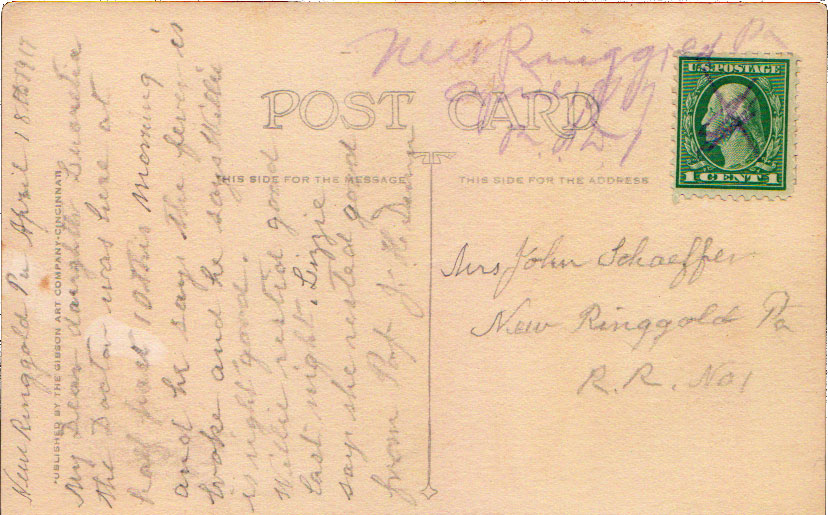 New Ringgold Pa April 18th 1917
My Dear daughter Lucretia
the Doctor was here at
half past 10 this morning
and he says the fever is
broke and he says Willie
is right good.
Willie rested good
last night, Lizzie
says she rested good
from Pap J. H.
PUBLISHED BY THE GIBSON ART COMPANY-CINCINNATI
New Ringgold Pa
April
POST CARD
THIS SIDE FOR THE MESSAGE
THIS SIDE FOR THE ADDRESS
U.S. POSTAGE
1 CENT 1
Mrs John Schaeffer
New Ringgold Pa
R. R. No 1